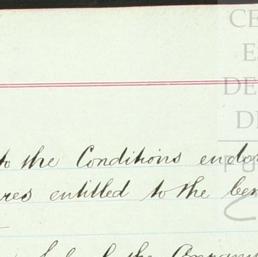 CE
E
DE
D
to the Conditions endor
res entitled to the ben
the Company